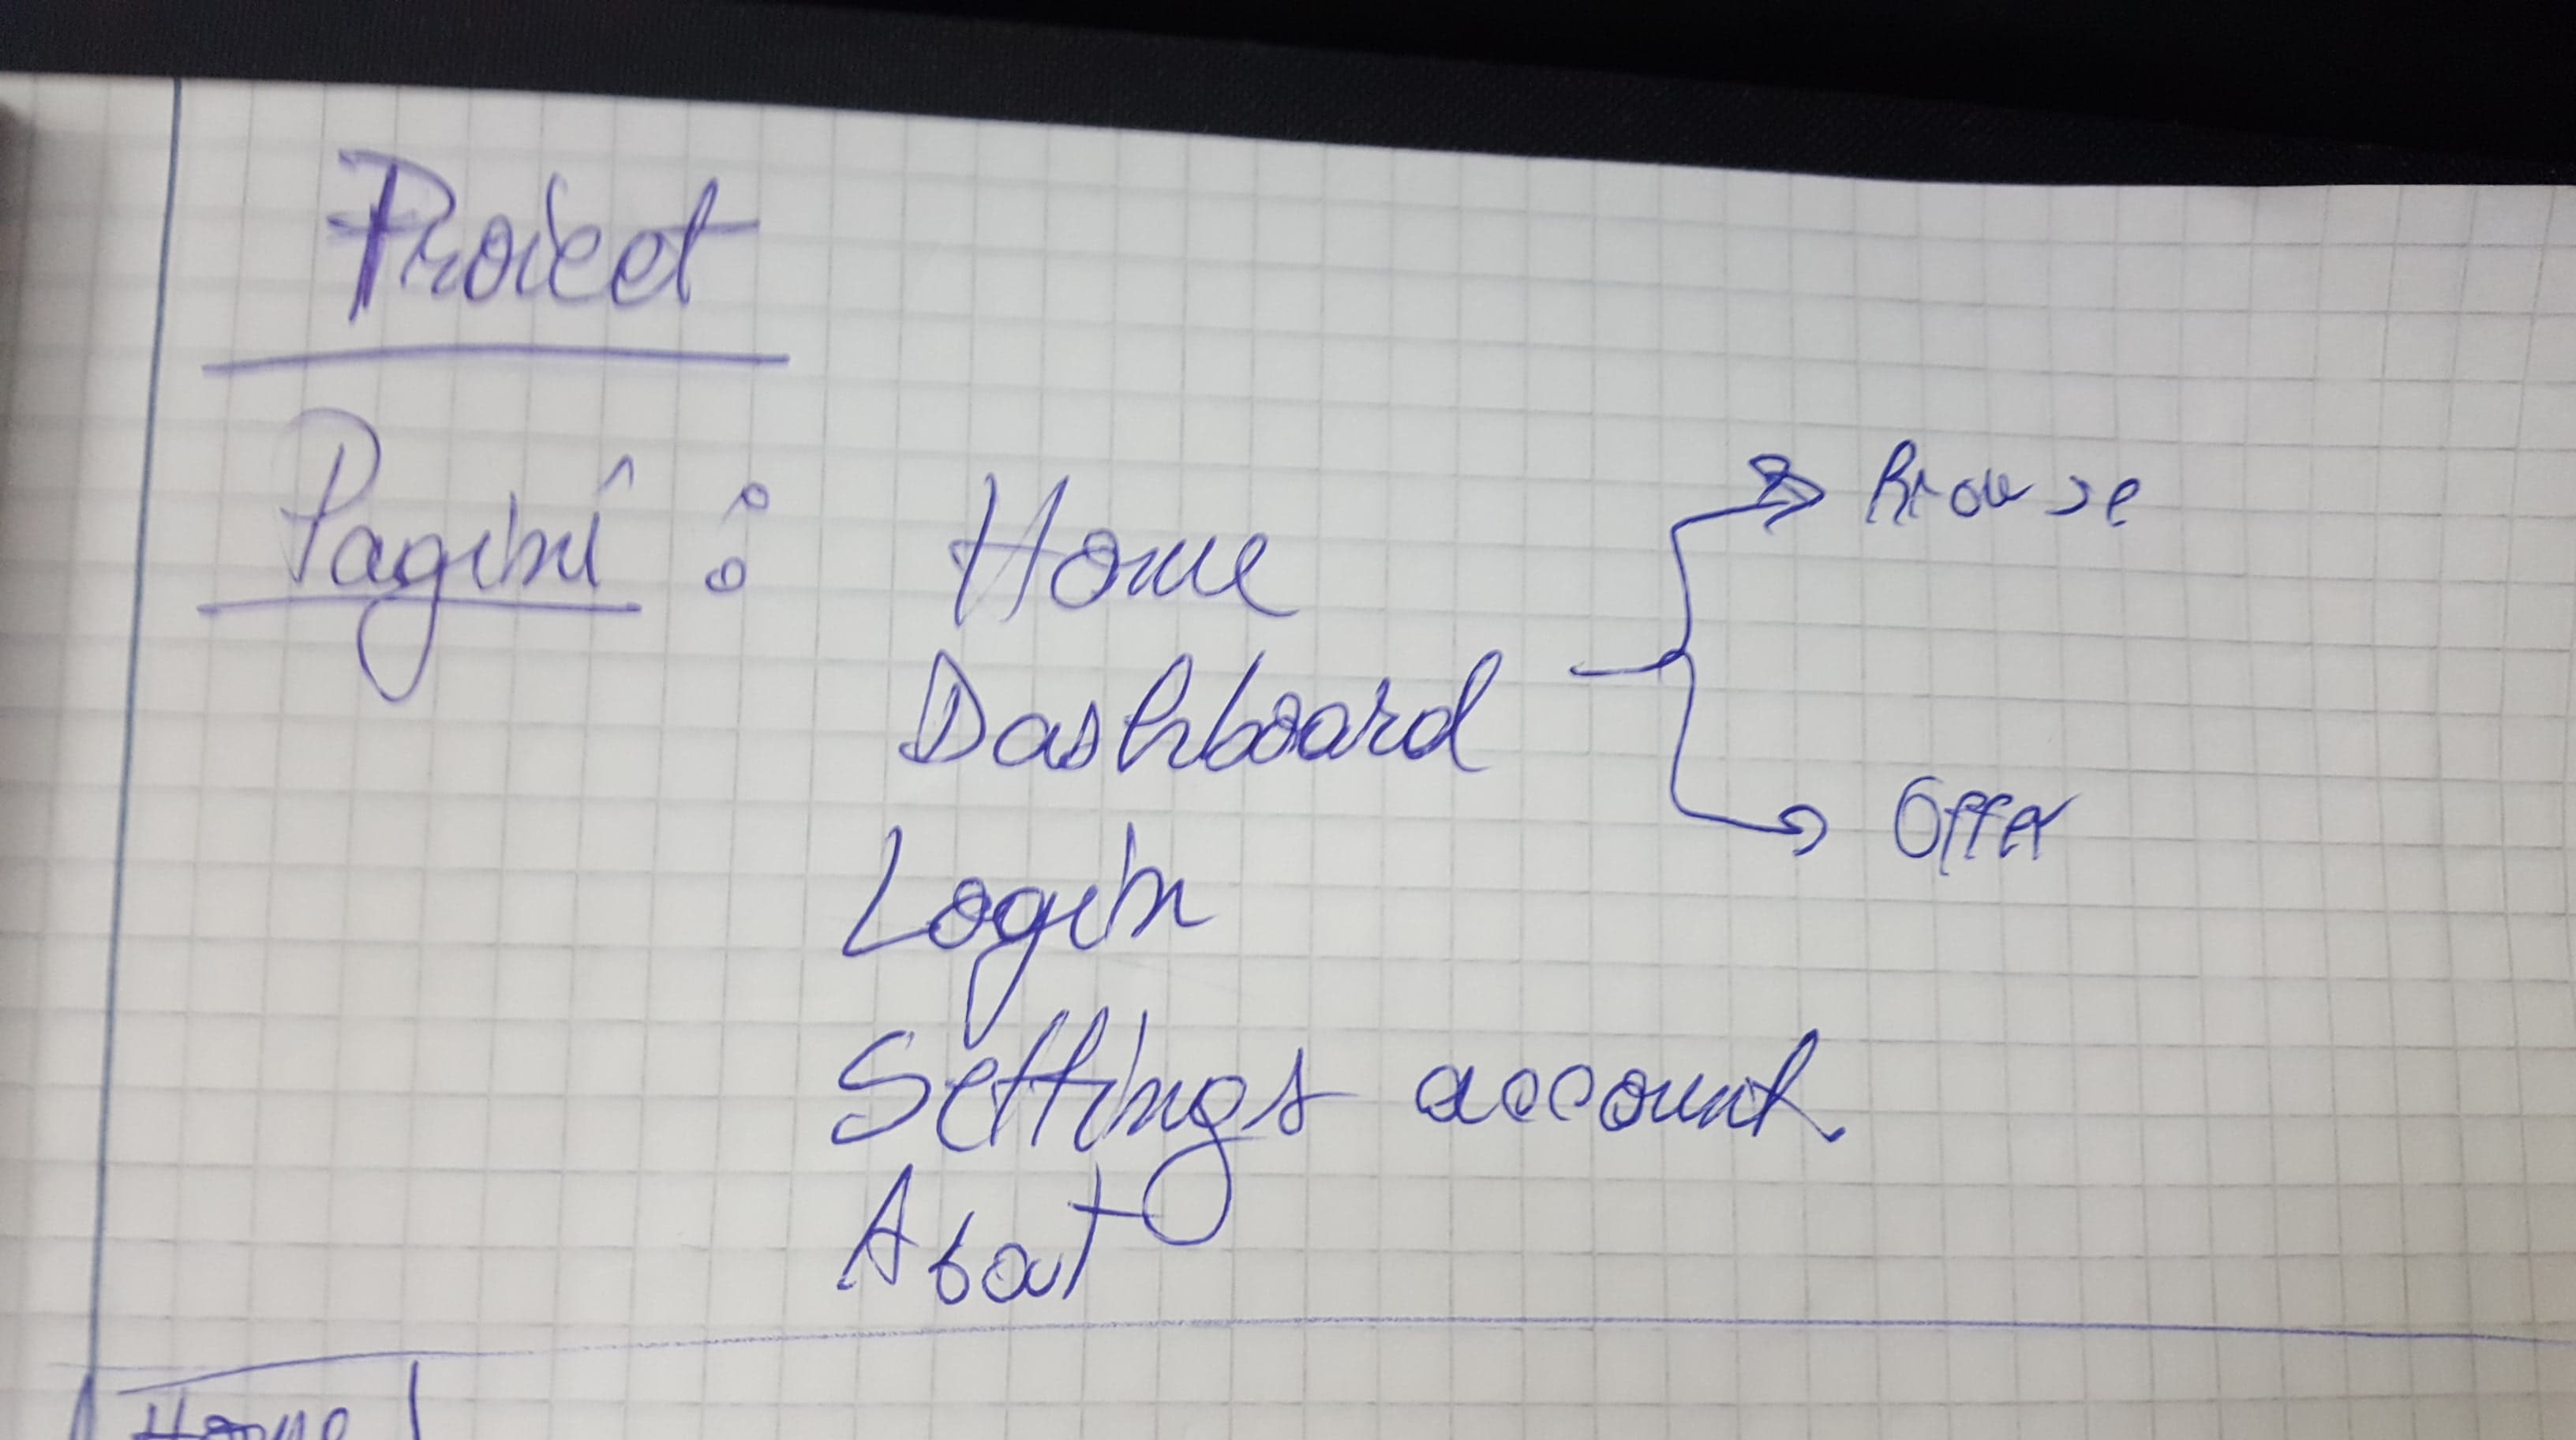 Proiect
Pagini :
Home
Browse
Dashboard
Offer
Login
Settings account
About
Home